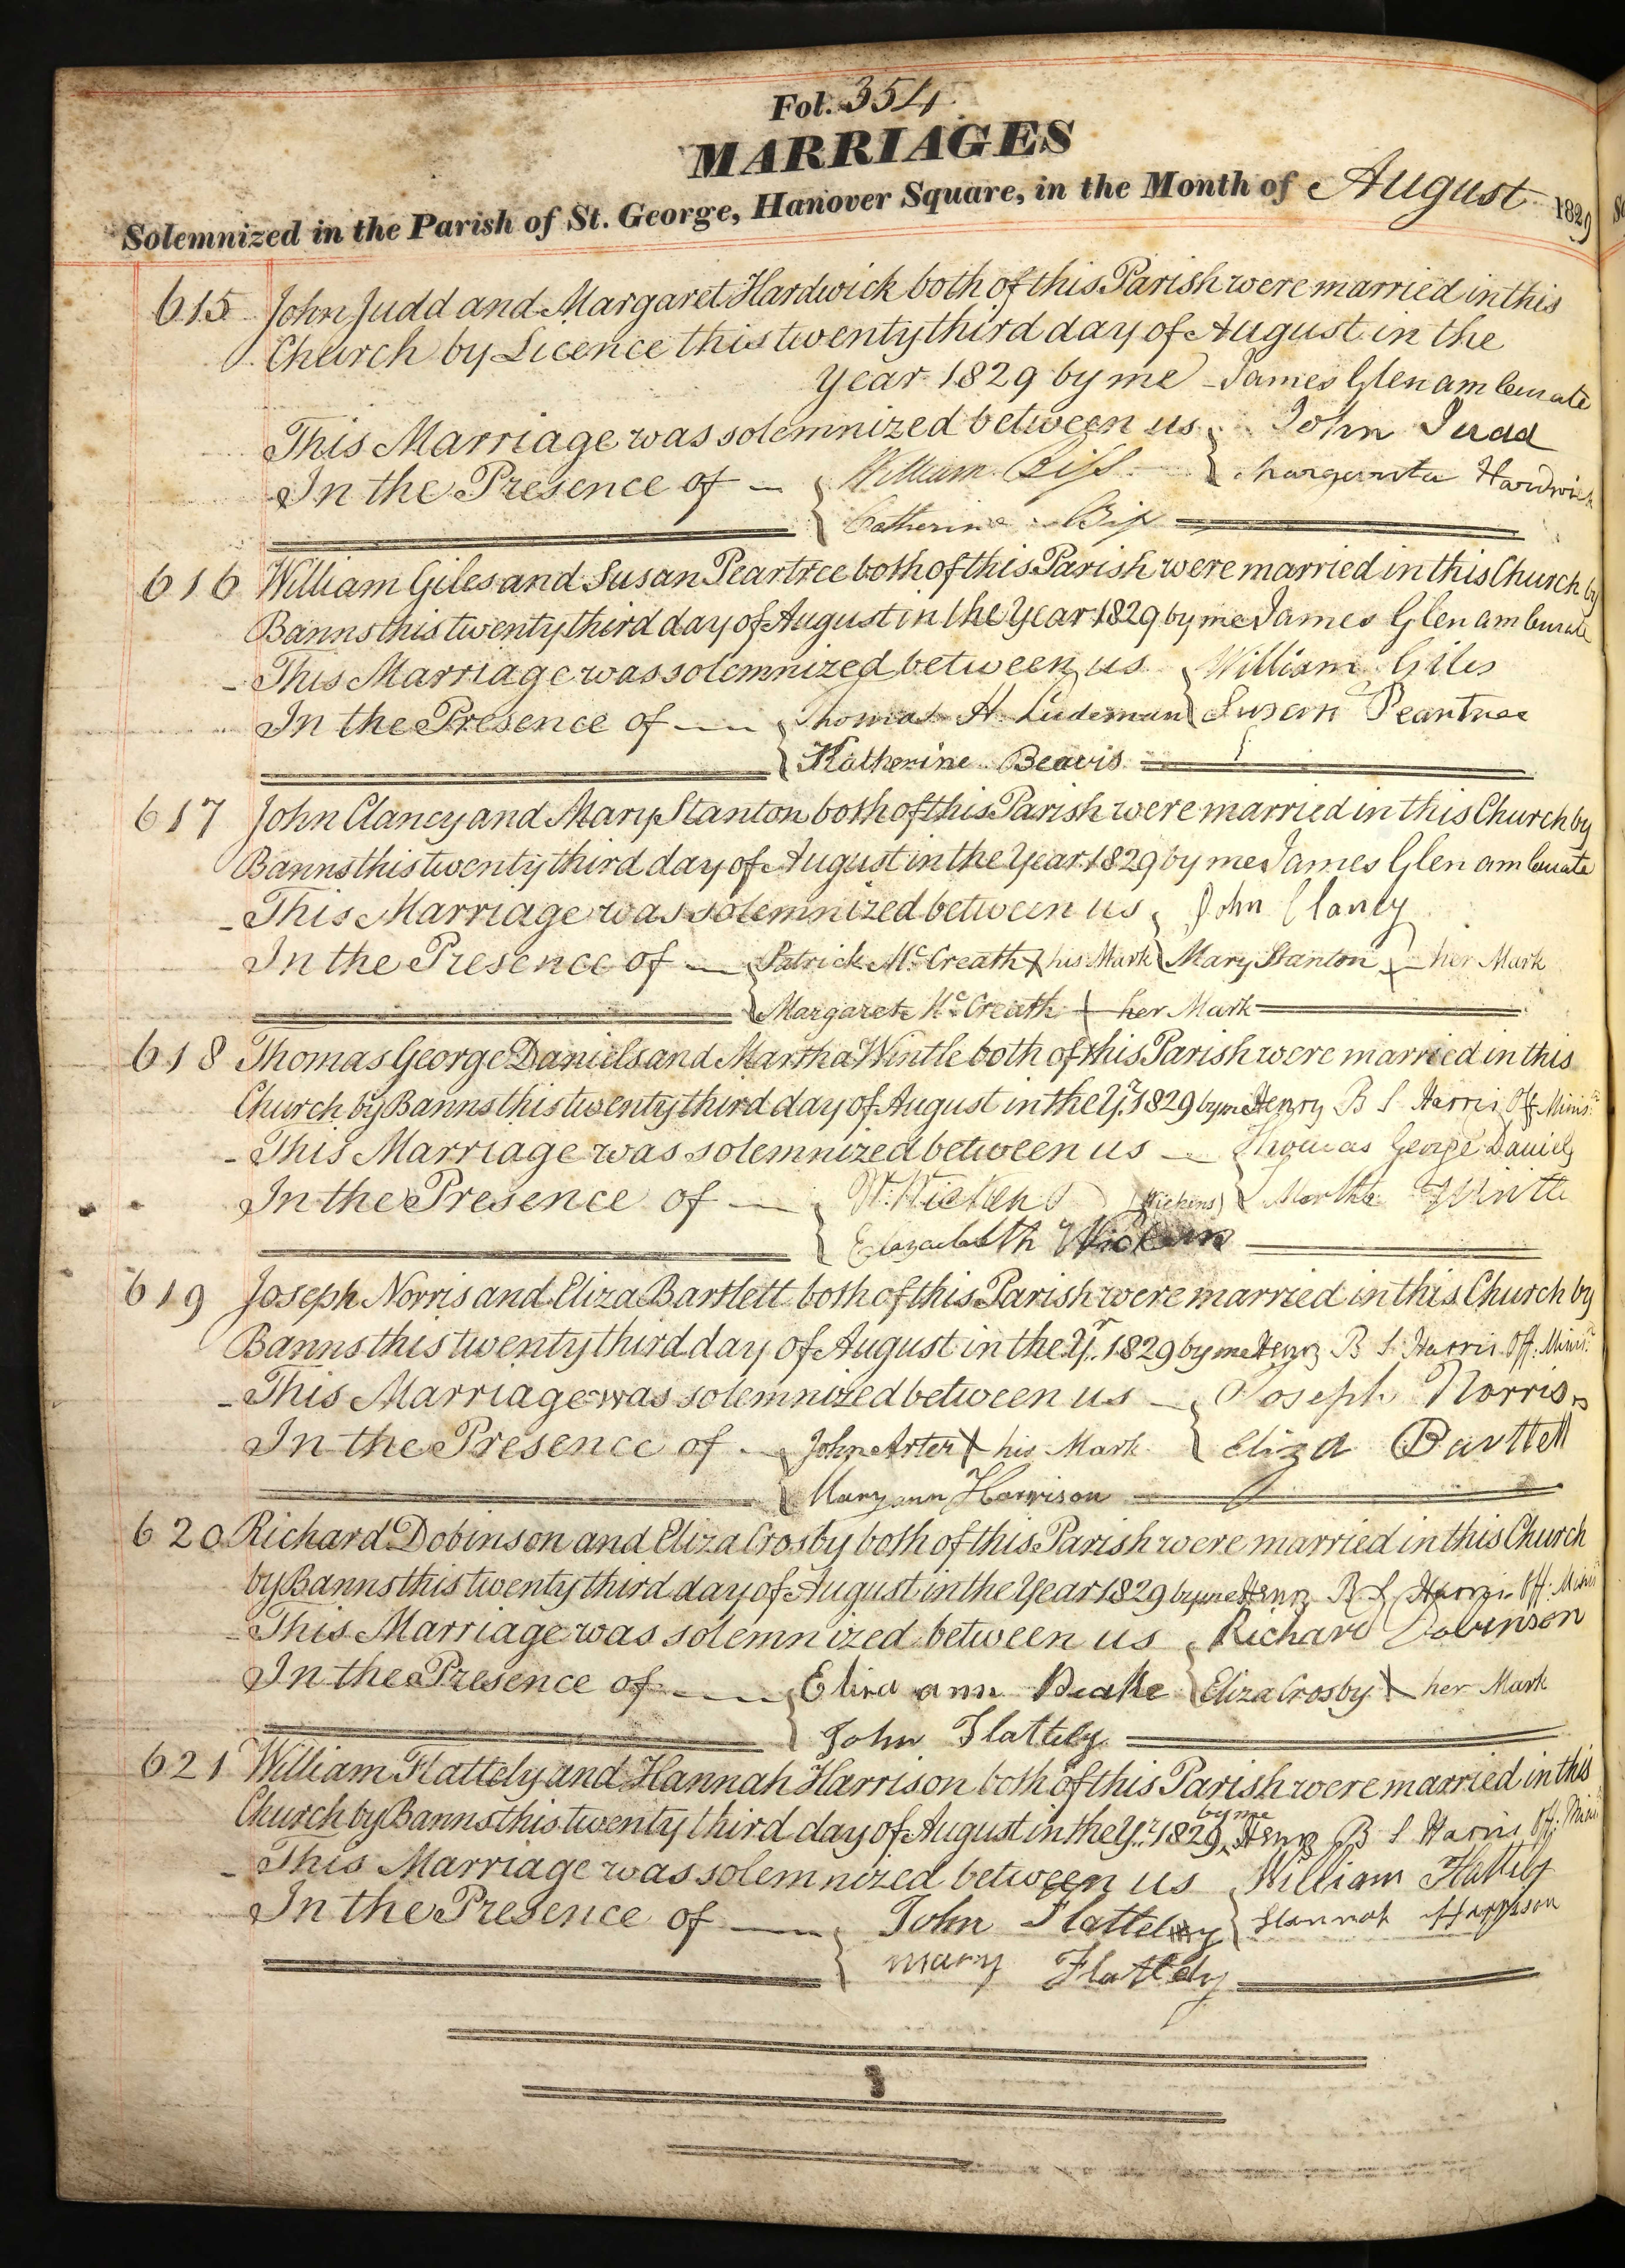 Fol. 354
MARRIAGES
Solemnized in the Parish of St. George, Hanover Square, in the Month of August 1829
615 John Judd and Margaret Hardwick both of this Parish were married in this
Church by Licence this twenty third day of August in the
Year 1829 by me James Glen am Curate
This Marriage was solemnized between us John Judd
In the Presence of William Hardwick
Catherine
616 William Giles and Susan Peartree both of this Parish were married in this Church by
Banns this twenty third day of August in the Year 1829 by me James Glen am Curate
This Marriage was solemnized between us William Giles
In the Presence of Thomas H. Ludeman Susan Peartree
Katherine Beavis
617 John Clancy and Mary Stanton both of this Parish were married in this Church by
Banns this twenty third day of August in the Year 1829 by me James Glen am Curate
This Marriage was solemnized between us John Clancy
In the Presence of Patrick McCreath X his Mark Mary Stanton X her Mark
Margaret McCreath X her Mark
618 Thomas George Daniels and Martha Wintle both of this Parish were married in this
Church by Banns this twenty third day of August in the Yr 1829 by me Henry B S Harris Off Minisr
This Marriage was solemnized between us Thomas George Daniels
In the Presence of W. Wickens (Wickens) Martha Wintle
Elizabeth Wickens
619 Joseph Norris and Eliza Bartlett both of this Parish were married in this Church by
Banns this twenty third day of August in the Yr 1829 by me Henry B S Harris Off: Minisr
This Marriage was solemnized between us Joseph Norris
In the Presence of John Arter X his Mark Eliza Bartlett
Mary ann Harrison
620 Richard Dobinson and Eliza Crosby both of this Parish were married in this Church
by Banns this twenty third day of August in the Year 1829 by me Henry B S Harris Off: Minisr
This Marriage was solemnized between us Richard Dobinson
In the Presence of Eliza ann Eliza Crosby X her Mark
John Flattely
621 William Flattely and Hannah Harrison both of this Parish were married in this
Church by Banns this twenty third day of August in the Yr 1829 by me Henry B S Harris Off: Minisr
This Marriage was solemnized between us William Flattely
In the Presence of John Flattely Hannah Harrison
mary Flattely